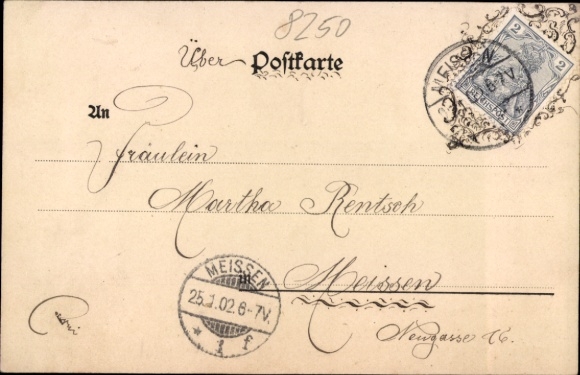 8250
Über Postkarte
MEISSEN
6-7V.
2 2
An
Fräulein
Martha Rentsch
in Meissen
Neugasse 16.
MEISSEN
25.1.02.6-7V.
* 1 f